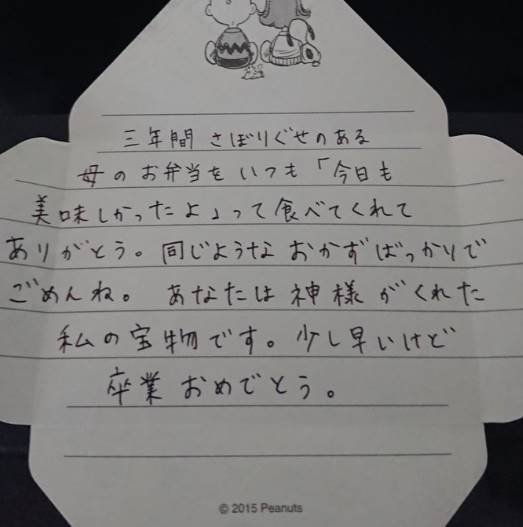 三年間 さぼりぐせのある
母のお弁当をいつも「今日も
美味しかったよ」って食べてくれて
ありがとう。同じようなおかずばっかりで
ごめんね。 あなたは神様がくれた
私の宝物です。少し早いけど
卒業おめでとう。
© 2015 Peanuts